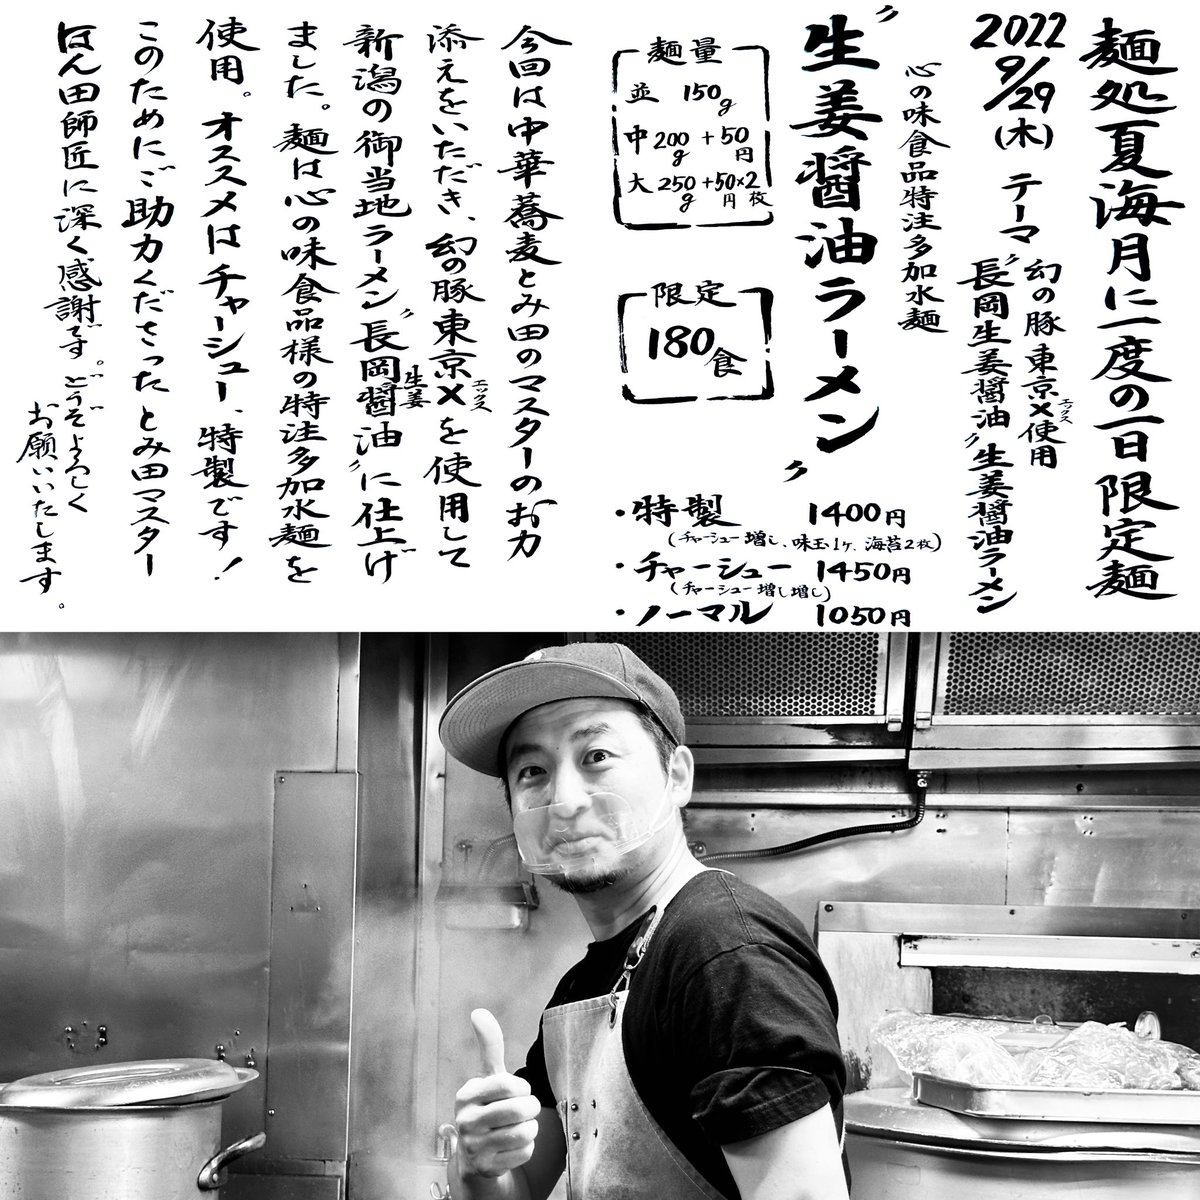 麺処夏海月に一度の一日限定麺
2022
9/29
(木)
テーマ
幻の豚 東京X使用
エックス
〝長岡生姜醤油〟生姜醤油ラーメン
心の味食品特注多加水麺
〝生姜醤油ラーメン〟
・特製 1400円
(チャーシュー増し、味玉1ヶ、海苔2枚)
・チャーシュー 1450円
(チャーシュー増し増し)
・ノーマル 1050円
麺量
並 150g
中 200g +50円
大 250g +50円×2枚
限定
180食
今回は中華蕎麦とみ田のマスターのお力
添えをいただき、幻の豚東京Xを使用して
エックス
新潟の御当地ラーメン〝長岡生姜醤油〟に仕上げ
ました。麺は心の味食品様の特注多加水麺を
使用。オススメはチャーシュー、特製です!
このためにご助力くださったとみ田マスター
ほん田師匠に深く感謝です。どうぞよろしく
お願いいたします。